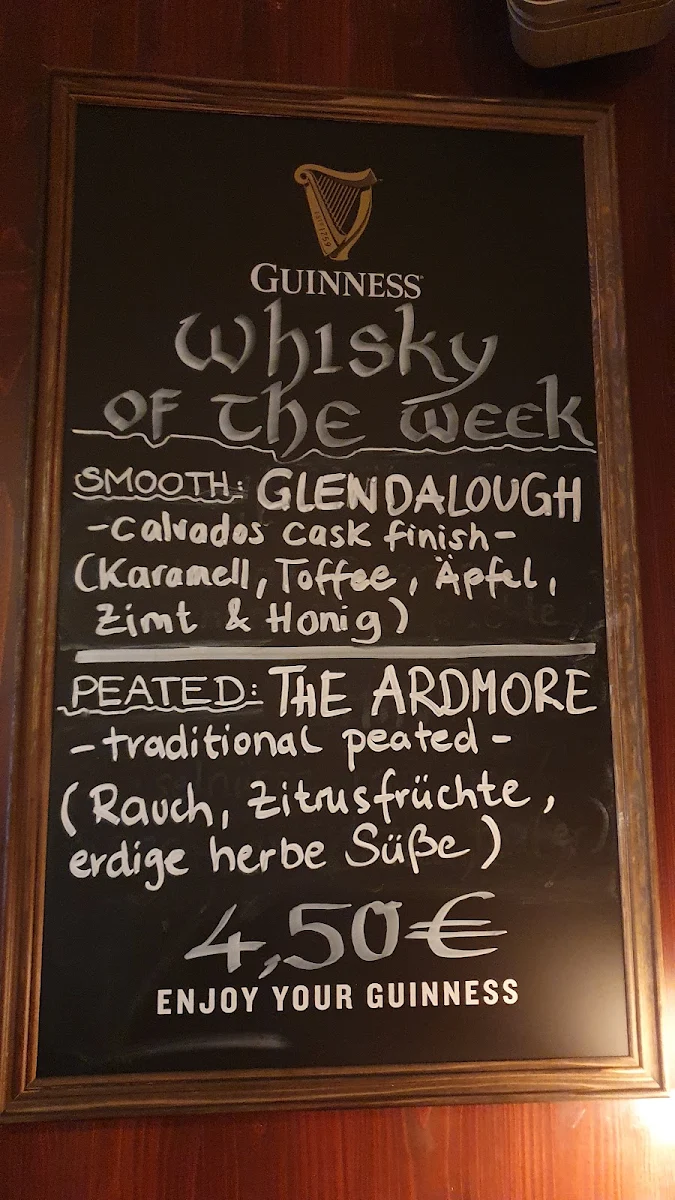 EST 1759
GUINNESS
Whisky
OF The week
SMOOTH: GLENDALOUGH
-calvados cask finish-
(Karamell, Toffee, Äpfel,
Zimt & Honig)
PEATED: THE ARDMORE
-traditional peated-
(Rauch, Zitrusfrüchte,
erdige herbe Süße)
4,50€
ENJOY YOUR GUINNESS